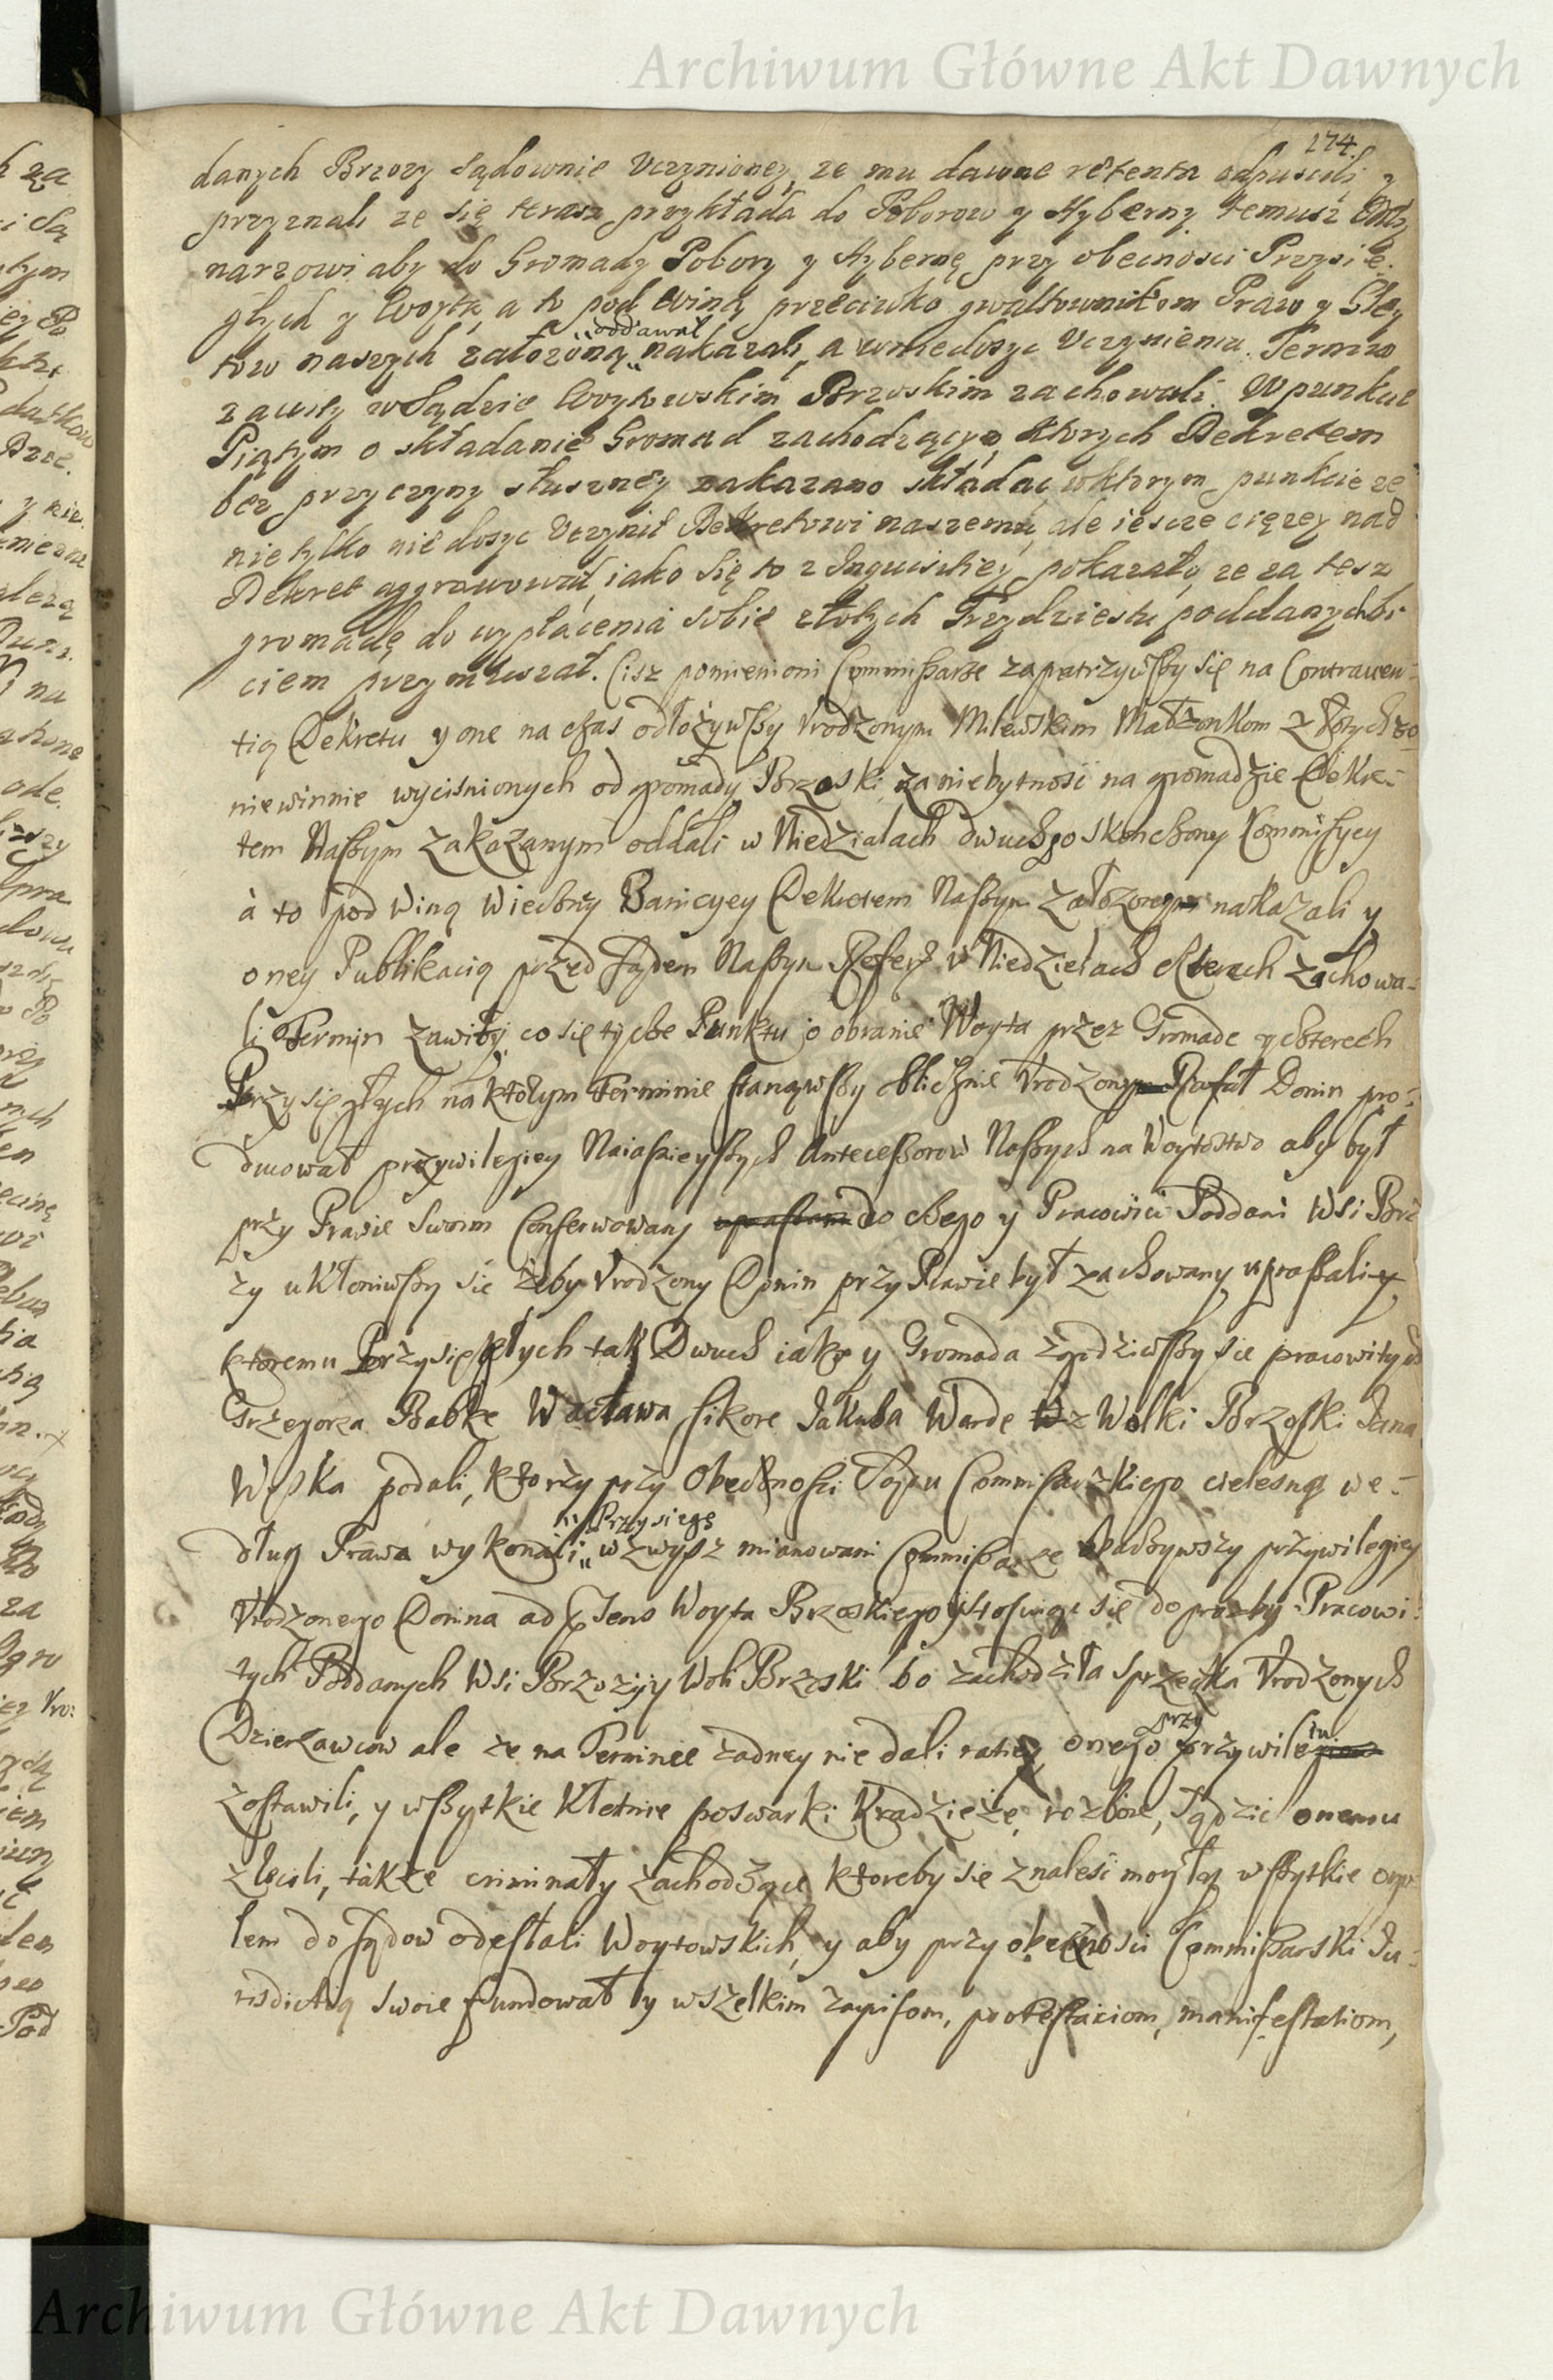 Archiwum Główne Akt Dawnych
174.
danych Brzozy Sądownie Uczynioney, ze mu dawne retenta odpuscili y
przyznali ze się teraz przykłada do Poborow y Hyberny temusz
narzowi aby do Gromady Pobory y Hybernę przy obecnosci Przysię-
głych y Woyta, a to pod winą przeciwko gwałtownikom Praw y Gley
tow naszych załozoną oddawał nakazali, a wniedosyc Uczynieniu Termin
zawity w Sądzie Woytowskim Brzoskim zachowali. W punkcie
Piątym o składanie Gromad zachodzącym, ktorych Dekretem
bez przyczyny słuszney zakazano składac, w ktorym punkcie ze
nie tylko nie dosyc Uczynił Dekretowi naszemu, ale iescze ciezey nad
Dekret aggrawował, iako się to z Inquisitiey pokazało, ze za tesz
gromadę do wypłacenia sobie złotych Trzydziestu poddanych bi
ciem przymuszał. Cisz pomienioni Commissarze zapatrzywszy się na Contraven-
tią Dekretu y one na czas odłożywszy Urodzonym Milewskim Małżonkom złotych 30
niewinnie wyciśnionych od gromady Brzoski za niebytnosć na gromadzie Dekre-
tem Naszym zakazanym oddali w Niedzialach dwuch po skonczoney Kommissyey
à to pod winą wieczney Banicyey Dekretem Naszym załozoney nakazali y
oney Publikacią przed Sądem Naszym Refer. w Niedzielach czterech zachowa-
li Termin zawity, co się tycze Punktu o obranie Woyta przez Gromade y czterech
Przysięgłych na ktorym Terminie stanąwszy oblicznie Urodzony Rafał Donin pro-
dukował przywilegiey Naiasnieyszych Antecessorow Naszych na Woytostwo aby był
przy Prawie Swoim Conserwowany do czego y Pracowici Poddani Wsi Brzo
zy ukłoniwszy się żeby Urodzony Donin przy Prawie był zachowany upraszali y
ktoremu Przysięgłych tak Dwuch iako y Gromada zgodziwszy się pracowitych
Grzegorza Babke Wacława Sikore Jakuba Warde z Wolki Brzoski Jana
podali, ktorzy przy Obecznosci Sądu Commissarskiego cielesną we-
dług Prawa wykonali Przysięgę wzwysz mianowani Commissarze przywilegiey
Urodzonego Donina ad Woyta Brzoskiego y stosuiąc się do prozby Pracowi-
tych Poddanych Wsi Brzozy y Woli Brzoski bo zachodziła sprzeczka Urodzonych
Dzierzawcow ale że na Terminie zadney nie dali ratiey onego przy przywileiu
zostawili, y wszytkie kłotnie poswarki kradzieże, rozboie, sądzić onemu
zlecili, także criminały zachodzące ktoreby się znalesć mogły wszytkie
łem do sądow odesłali Woytowskich, y aby przy obecnosci Commissarski Ju-
risdictią swoie fundował y wszelkim zapisom, protestaciom, manifestatiom,
Archiwum Główne Akt Dawnych